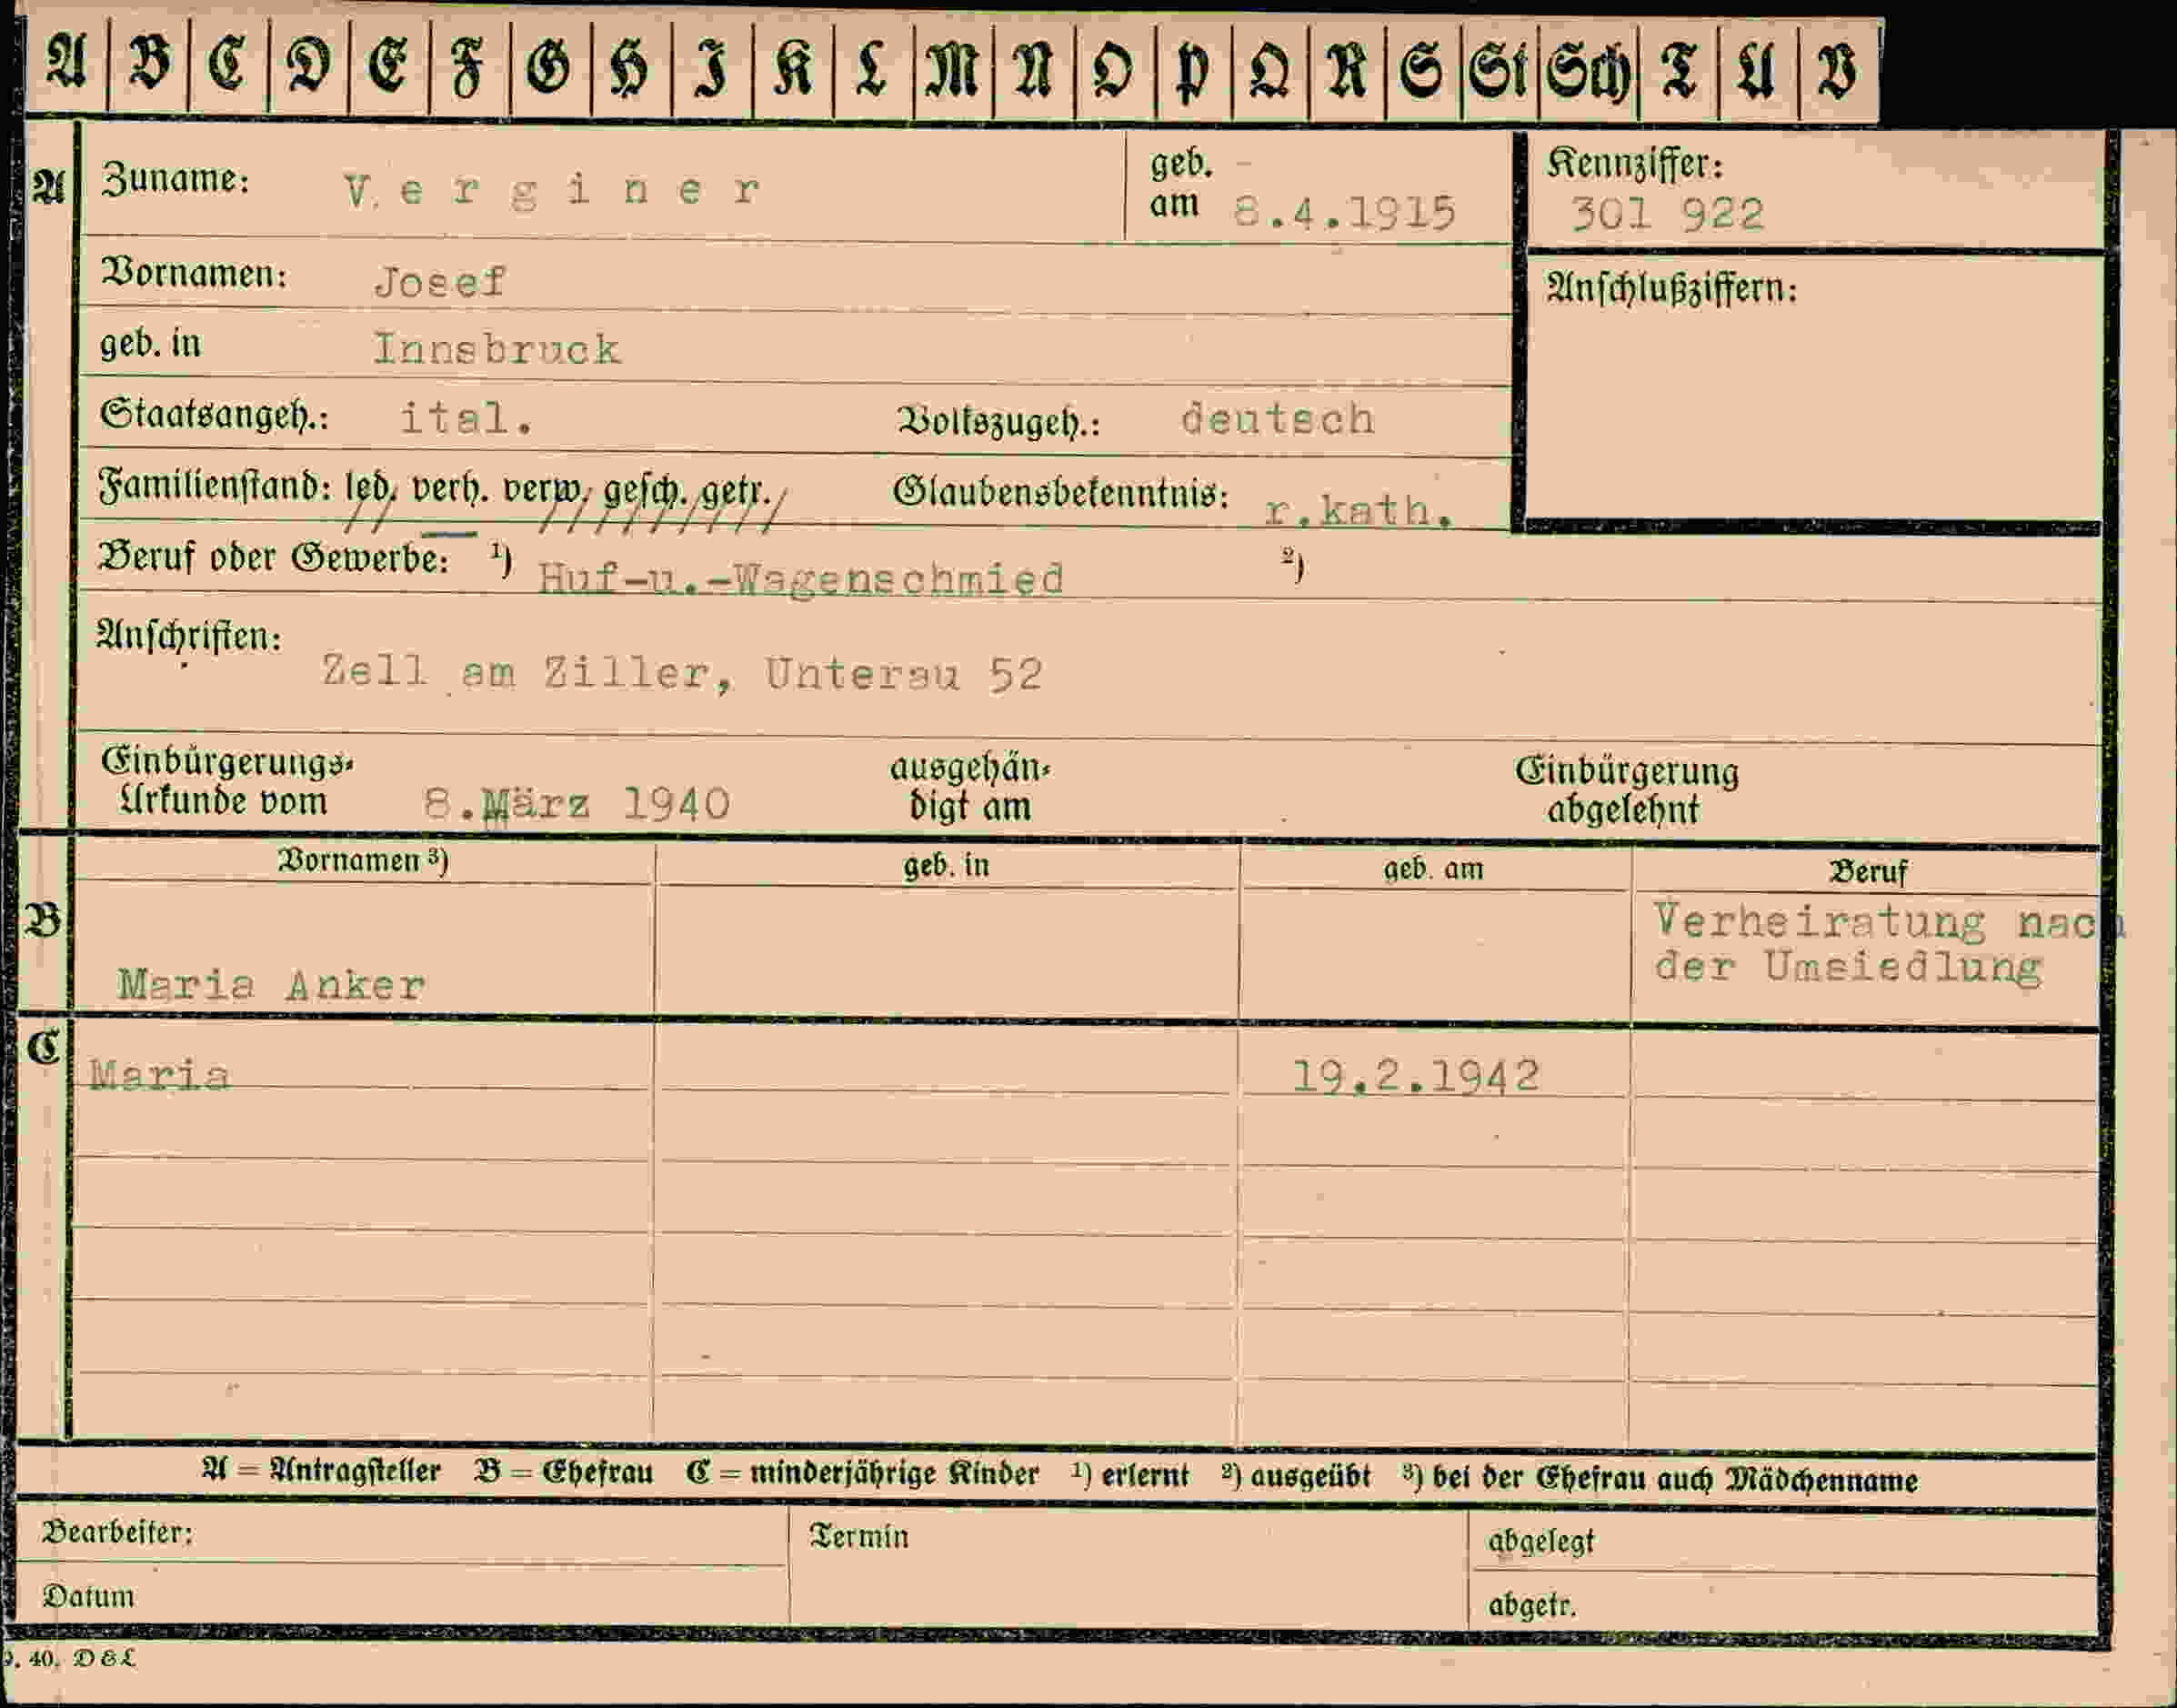 A B C D E F G H I K L M N O P Q R S St Sch T U V
A Zuname: Verginer geb. am 8.4.1915 Kennziffer: 301 922
Vornamen: Josef Anschlußziffern:
geb. in Innsbruck
Staatsangeh.: ital. Volkszugeh.: deutsch
Familienstand: led. verh. verw. gesch. getr. Glaubensbekenntnis: r.kath.
Beruf oder Gewerbe: 1) Huf-u.-Wagenschmied 2)
Anschriften:
Zell am Ziller, Unterau 52
Einbürgerungs- ausgehän- Einbürgerung
Urkunde vom 8.März 1940 digt am abgelehnt
Vornamen 3) geb. in geb. am Beruf
B Verheiratung nach
Maria Anker der Umsiedlung
C Maria 19.2.1942
A = Antragsteller B = Ehefrau C = minderjährige Kinder 1) erlernt 2) ausgeübt 3) bei der Ehefrau auch Mädchenname
Bearbeiter: Termin abgelegt
Datum abgetr.
40. D&L